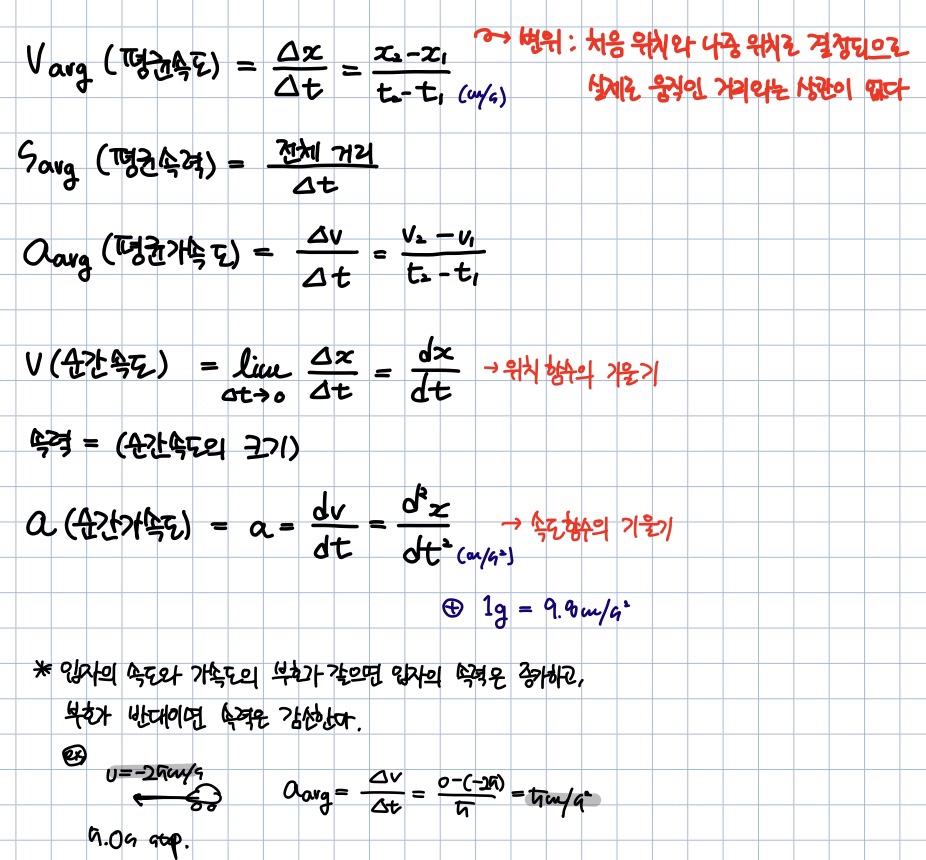 Varg (평균속도) = Δx/Δt = x₂-x₁/t₂-t₁ (m/s)
→ 변위 : 처음 위치와 나중 위치로 결정되므로
실제로 움직인 거리와는 상관이 없다
Sarg (평균속력) = 전체 거리/Δt
aarg (평균가속도) = Δv/Δt = v₂-v₁/t₂-t₁
V (순간속도) = lim Δt→0 Δx/Δt = dx/dt → 위치함수의 기울기
속력 = (순간속도의 크기)
a (순간가속도) = a = dv/dt = d²x/dt² (m/s²) → 속도함수의 기울기
⊕ 1g = 9.8m/s²
* 입자의 속도와 가속도의 부호가 같으면 입자의 속력은 증가하고,
부호가 반대이면 속력은 감소한다.
ex
v=-25m/s
5.0s stop.
aarg = Δv/Δt = 0-(-25)/5 = 5m/s²